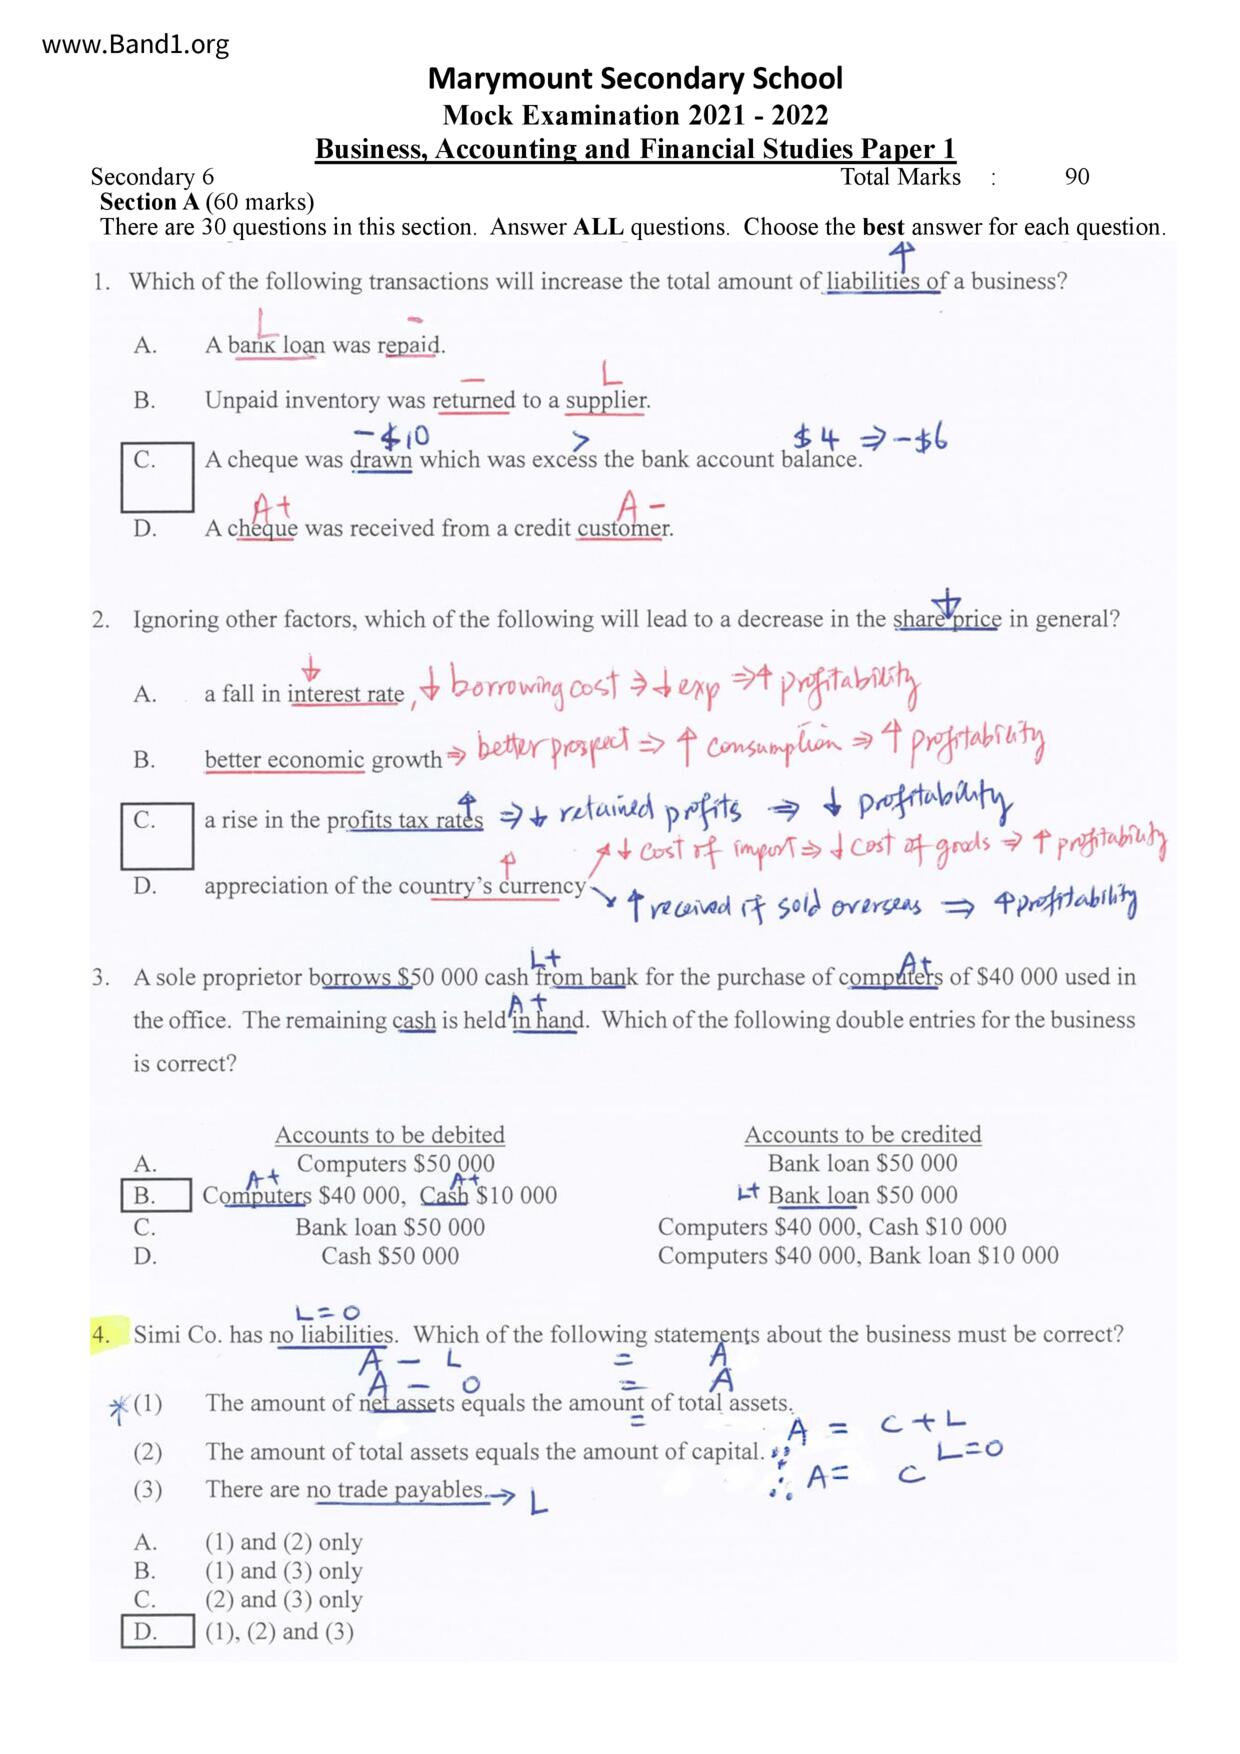 www.Band1.org
Marymount Secondary School
Mock Examination 2021 - 2022
Business, Accounting and Financial Studies Paper 1
Secondary 6 Total Marks : 90
Section A (60 marks)
There are 30 questions in this section. Answer ALL questions. Choose the best answer for each question.
↑
1. Which of the following transactions will increase the total amount of liabilities of a business?
L -
A. A bank loan was repaid.
- L
B. Unpaid inventory was returned to a supplier.
-$10 > $4 ⇒ -$6
C. A cheque was drawn which was excess the bank account balance.
A+ A-
D. A cheque was received from a credit customer.
↓
2. Ignoring other factors, which of the following will lead to a decrease in the share price in general?
↓
A. a fall in interest rate, ↓ borrowing cost ⇒ ↓ exp ⇒ ↑ profitability
B. better economic growth ⇒ better prospect ⇒ ↑ consumption ⇒ ↑ profitability
↑
C. a rise in the profits tax rates ⇒ ↓ retained profits ⇒ ↓ profitability
↑ ↗ ↓ cost of import ⇒ ↓ cost of goods ⇒ ↑ profitability
D. appreciation of the country's currency ↘ ↑ received if sold overseas ⇒ ↑ profitability
L+ A+
3. A sole proprietor borrows $50 000 cash from bank for the purchase of computers of $40 000 used in
A+
the office. The remaining cash is held in hand. Which of the following double entries for the business
is correct?
Accounts to be debited Accounts to be credited
A. Computers $50 000 Bank loan $50 000
A+ A+
B. Computers $40 000, Cash $10 000 L+ Bank loan $50 000
C. Bank loan $50 000 Computers $40 000, Cash $10 000
D. Cash $50 000 Computers $40 000, Bank loan $10 000
L = 0
4. Simi Co. has no liabilities. Which of the following statements about the business must be correct?
A - L = A
A - 0 = A
*(1) The amount of net assets equals the amount of total assets.
= A = C + L
(2) The amount of total assets equals the amount of capital. ∵ L=0
∴ A = C
(3) There are no trade payables. → L
A. (1) and (2) only
B. (1) and (3) only
C. (2) and (3) only
D. (1), (2) and (3)